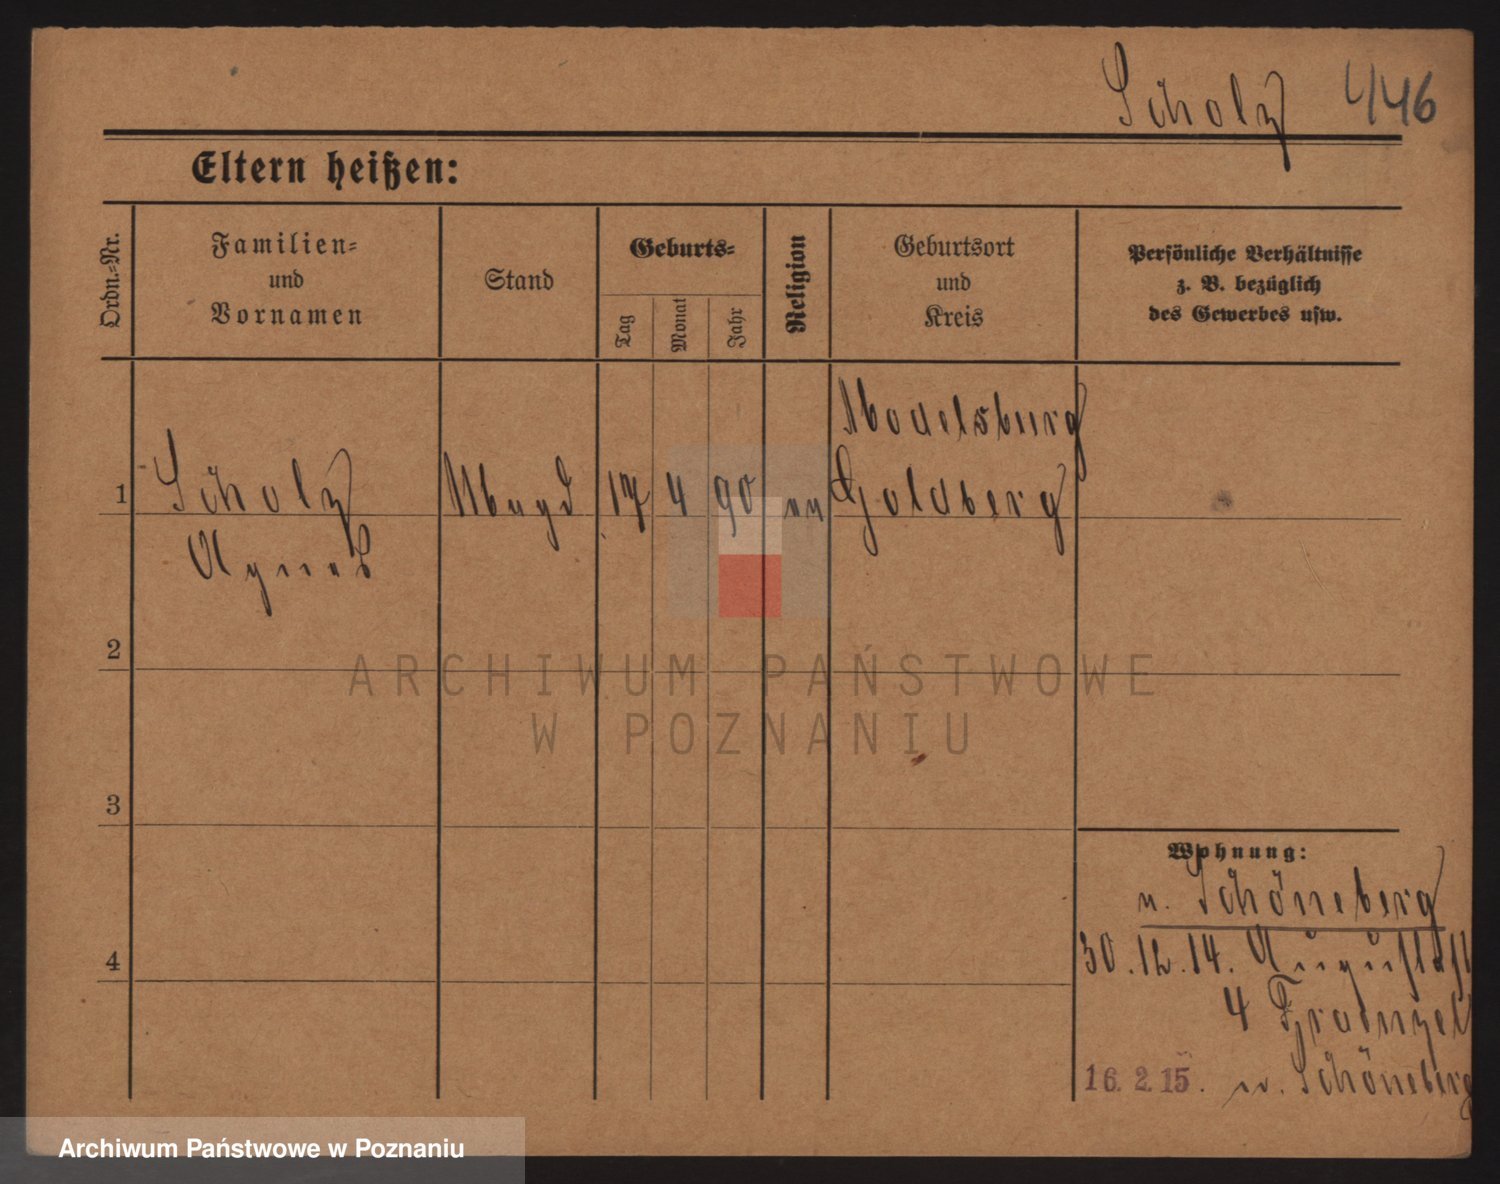 Scholz 446
Eltern heißen:
Ordn.-Nr.
Familien-
und
Vornamen
Stand
Geburts-
Tag
Monat
Jahr
Religion
Geburtsort
und
Kreis
Persönliche Verhältnisse
z. B. bezüglich
des Gewerbes usw.
1
Scholz
Agnes
Magd
17
4
90
Goldberg
2
3
4
Wohnung:
n. Schöneberg
30.12.14. Augustast
4
16. 2. 15. Schöneberg
ARCHIWUM PAŃSTWOWE
W POZNANIU
Archiwum Państwowe w Poznaniu